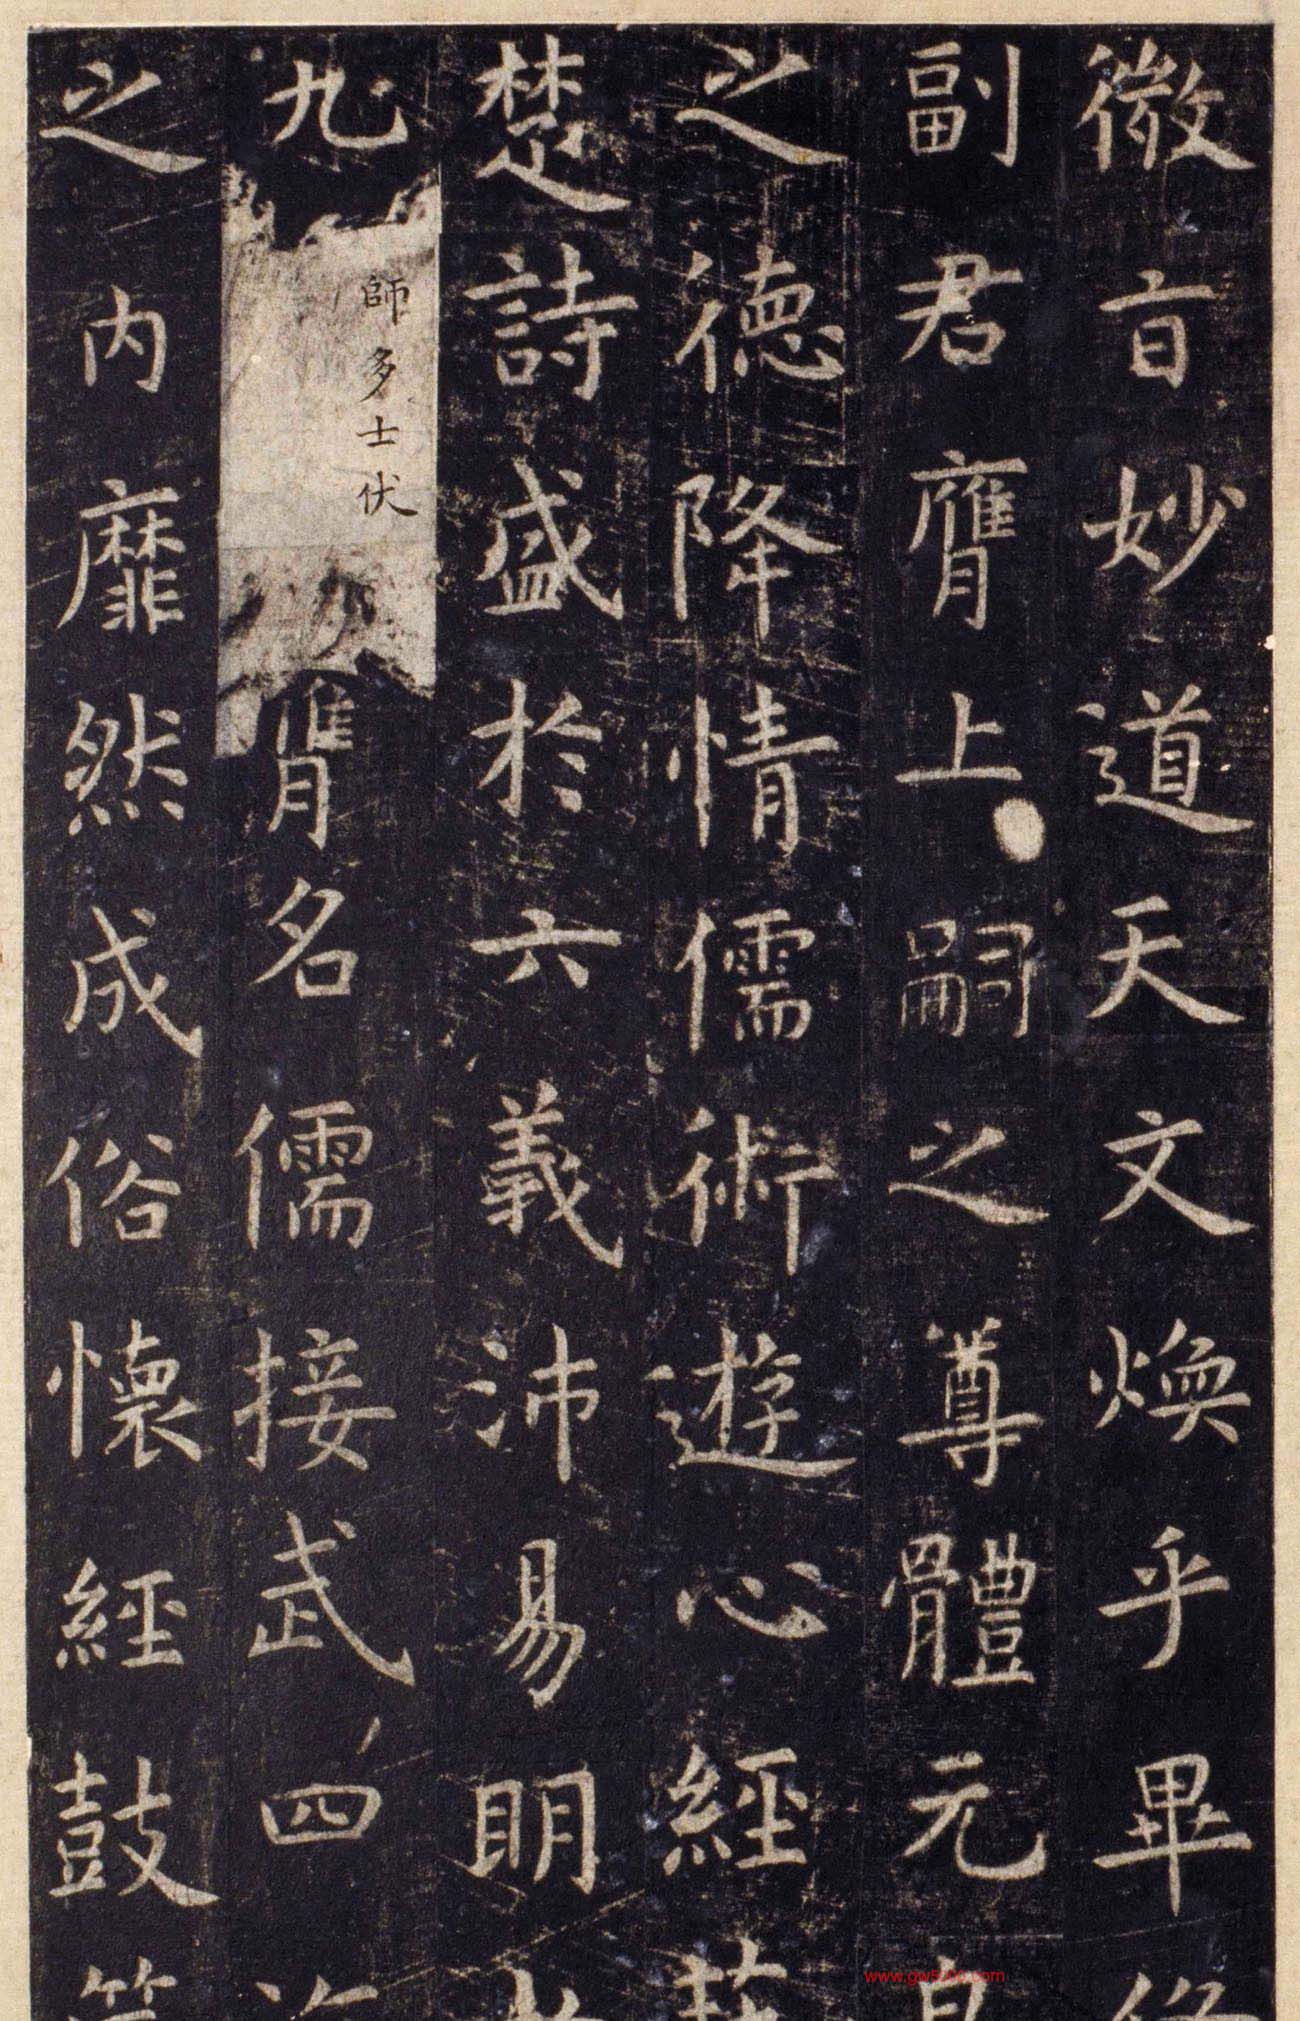 微旨妙道天文煥乎畢
副君膺上嗣之尊體元
之德降情儒術遊心經
楚詩盛於六義沛易明
九師多士伏膺名儒接武四
之內靡然成俗懷經鼓
www.gw5000.com